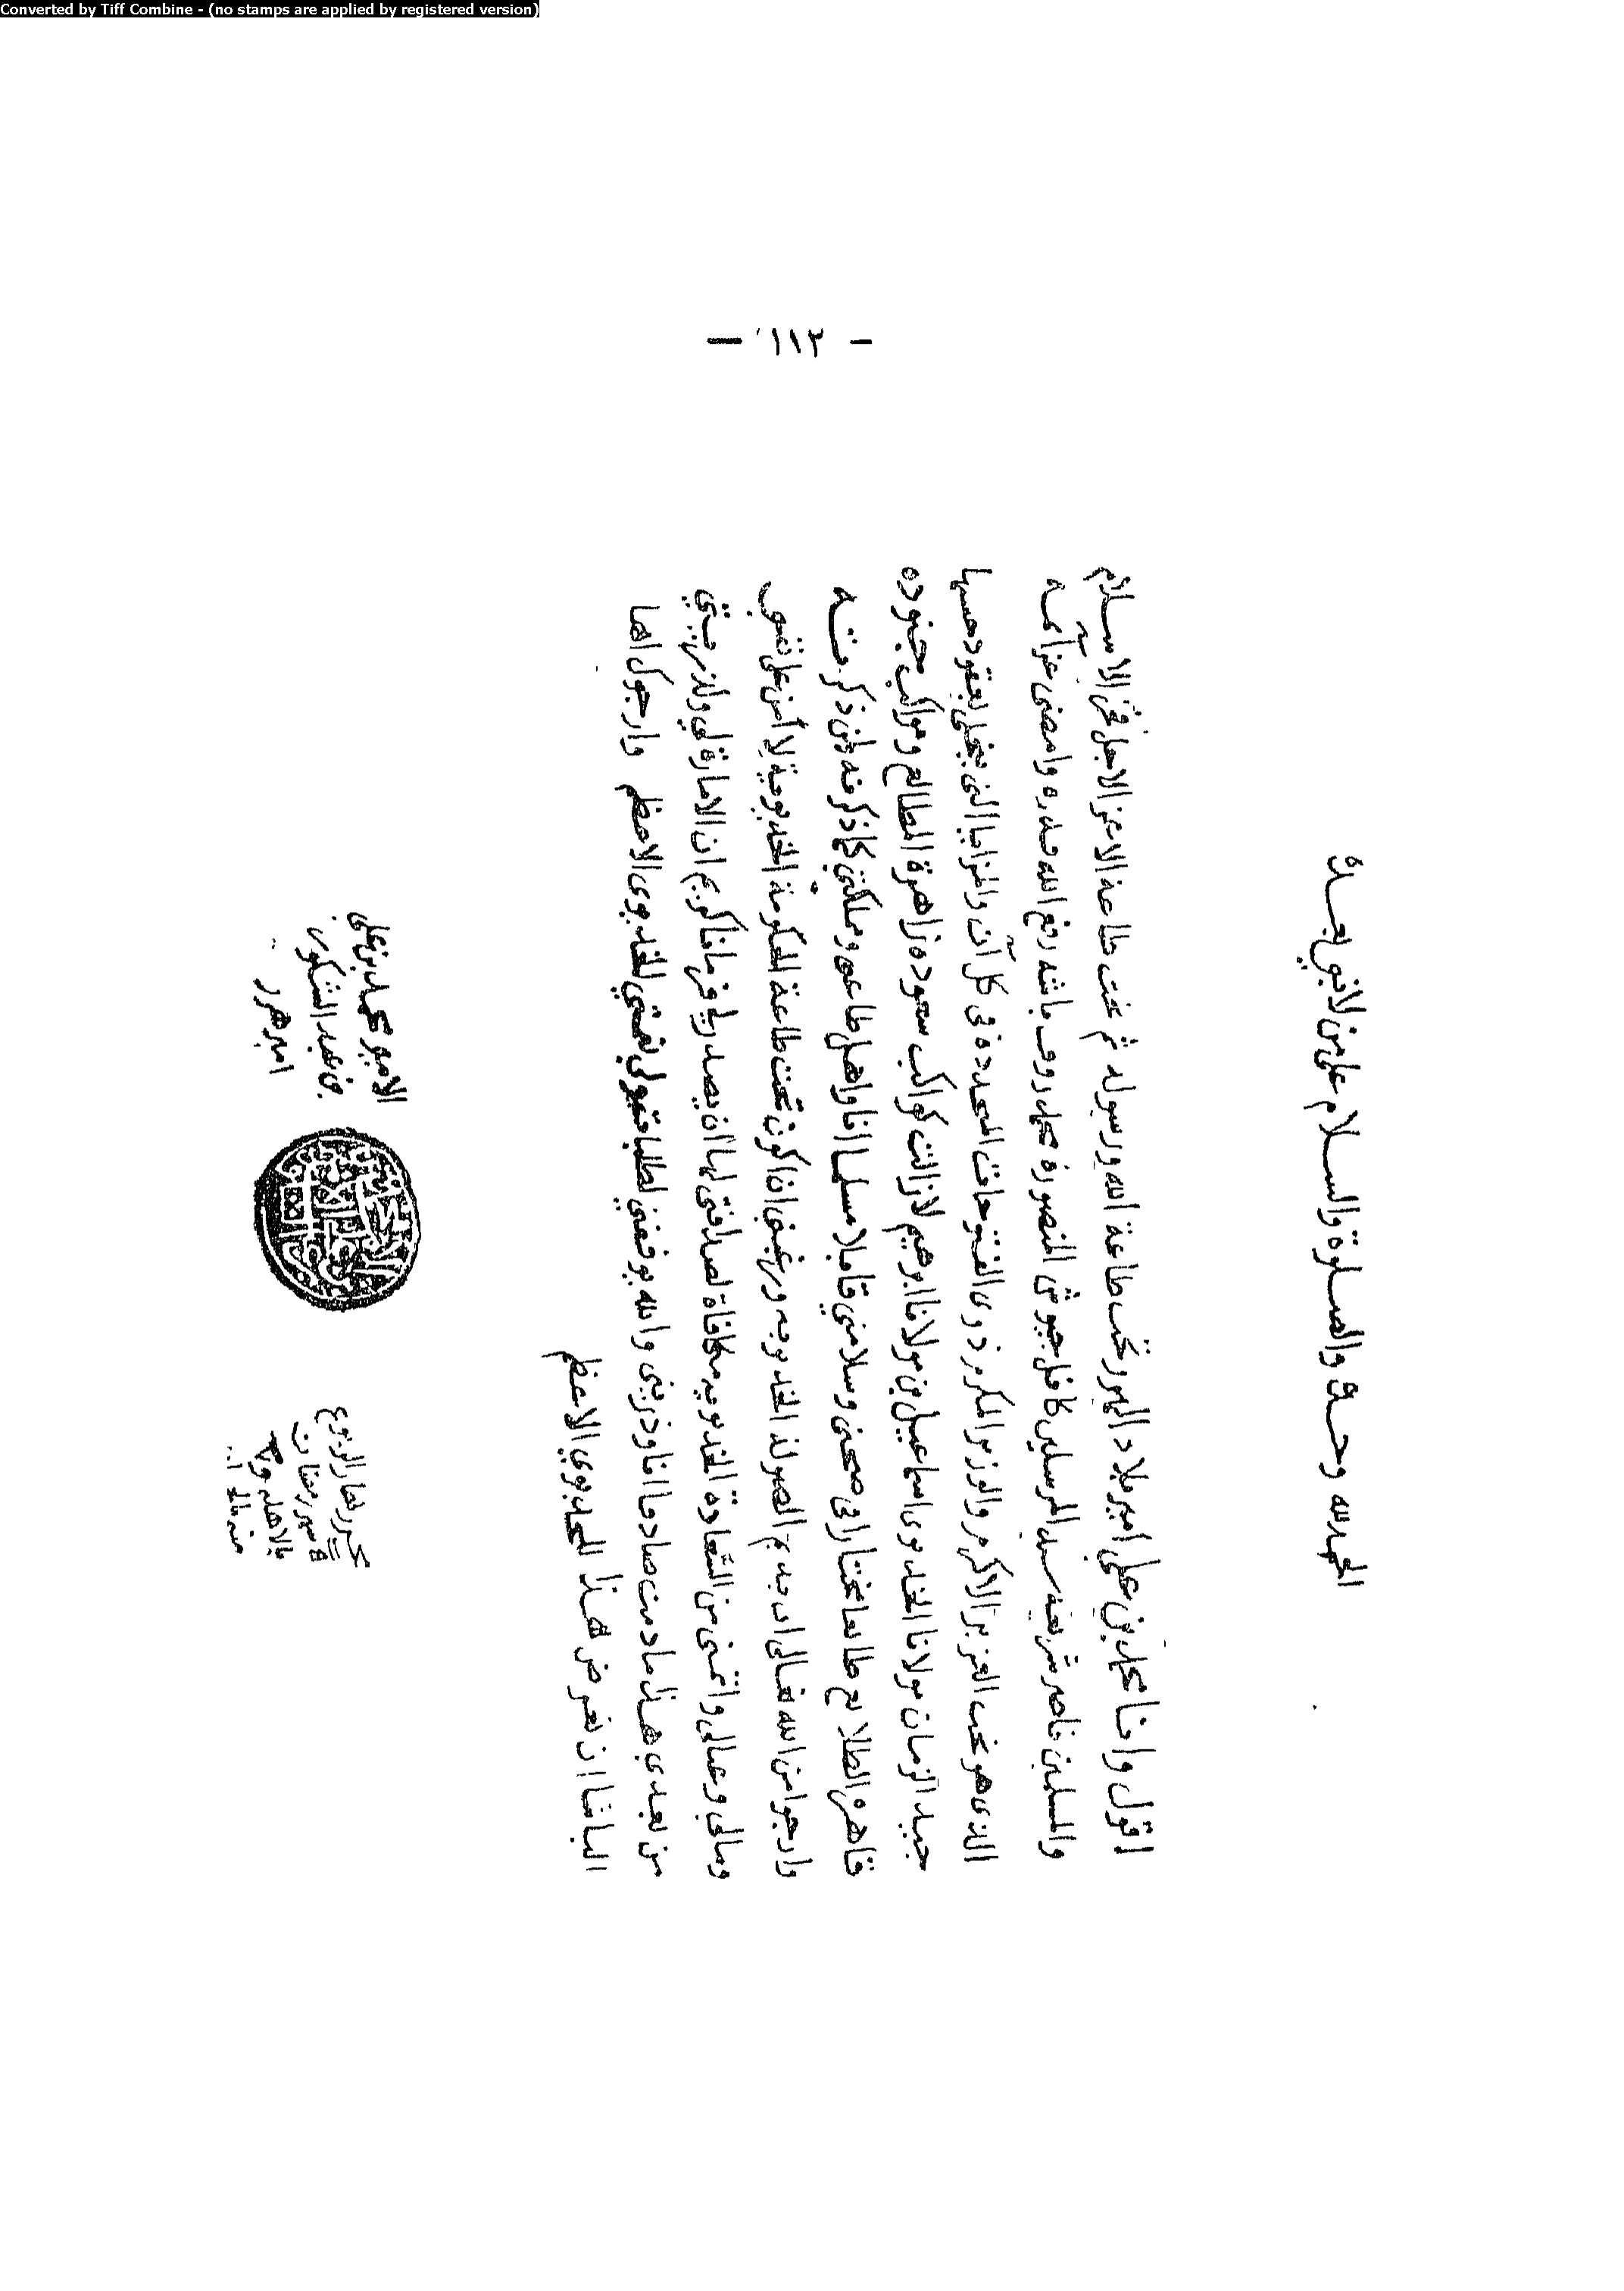 Converted by Tiff Combine - (no stamps are applied by registered version)
— ١١٣ —
الحمد لله وحده والصلوة والسلام على من لا نبي بعده
اقول وانا محمد بن علي امير بلاد الهرر تحت طاعة الله ورسوله ثم تحت طاعة الاعز الاجل فخر الاسلام
والمسلمين ناصر شريعة سيد المرسلين كافل جيوش المنصورة محمد روف باشه رفع الله قدره وامضى عزائمه
الذى هو تحت العزيز الاكرم والوزير المكرم ذوى الفتوحات المجددة فى كل آن والمزايا التى يتحلى بعقودها
جيد الزمان مولانا الخديوى اسماعيل بن مولانا ابراهيم لازالت كواكب سعوده زاهرة المطالع ومواكب جنوده
قاهرة الطلايع طايعا مختارا فى صحتى وسلامتي قايلا مسلما انا واهل طاعتى ومملكتي كما ذكر فيه
وارجوا من الله تعالى ان يديم الصولة الخديويه ورغبتى ان اكون تحت طاعة الحكومة الخديوية لأأمن على نفسي
ومالي وعيالى واتمنى من السعادة الخديويه مكافاة لصداقتى لها ان يصدر لي فرمانا كريم ان الامارة لي ولذريتي
من بعدي هذا ما دمت صادقا انا وذريتى والله يوفقني لطلبا ولي نعمتي الخديوى الاعظم وارجوك ايها
الباشا ان تعرض هذا للخديوي الاعظم
الامير محمد بن علي
بن عبد الشكور
امير هرر